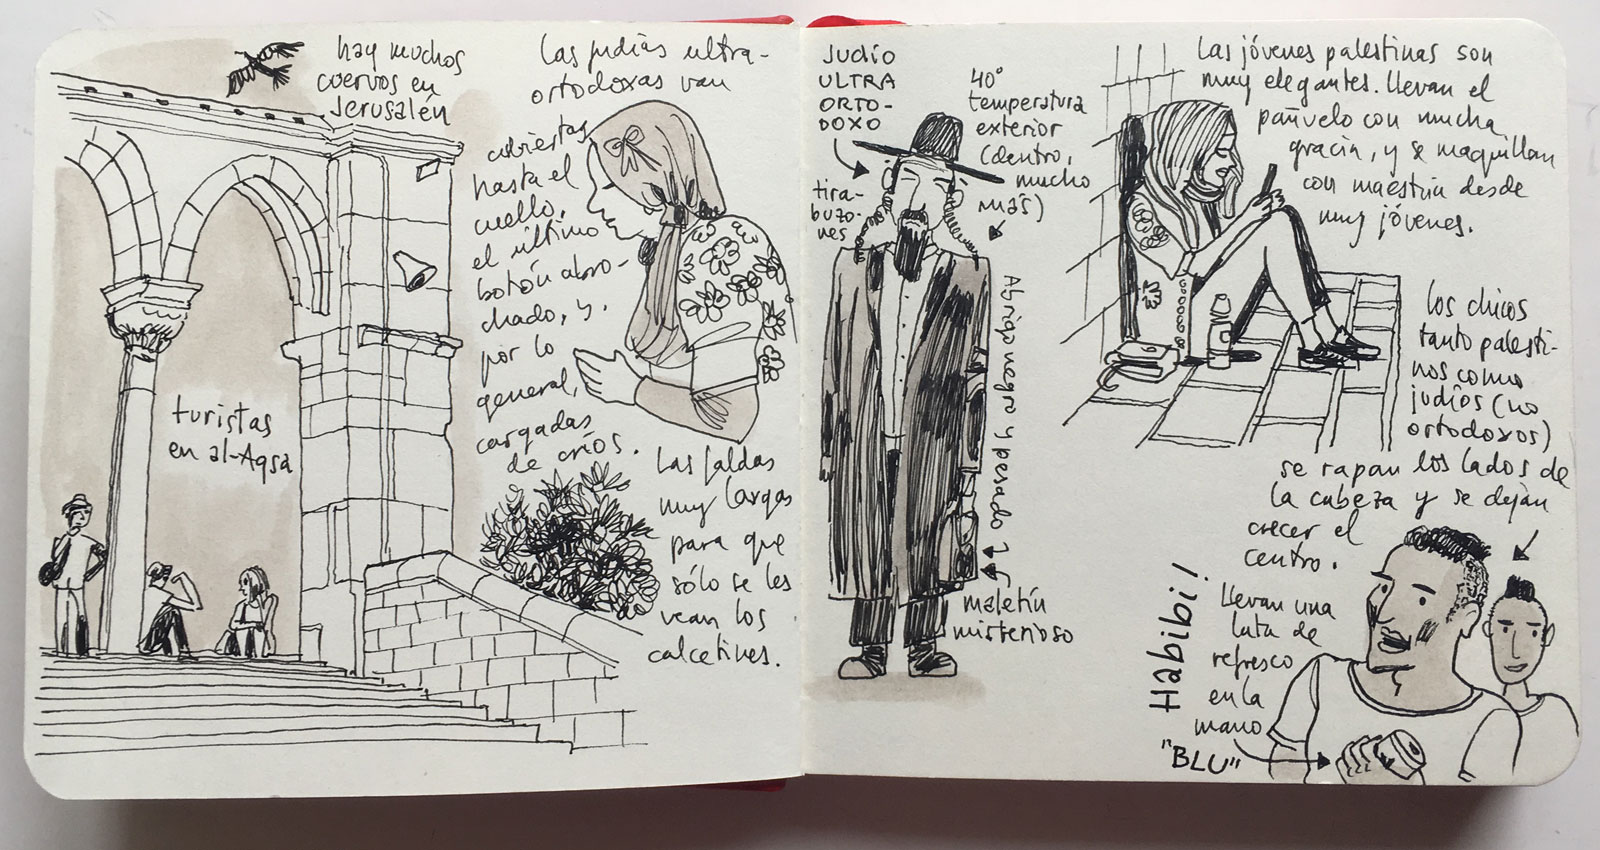 hay muchos
cuervos en
Jerusalén
turistas
en al-Aqsa
Las judías ultra-
ortodoxas van
cubiertas
hasta el
cuello,
el último
botón abro-
chado, y,
por lo
general,
cargadas
de críos.
Las faldas
muy largas
para que
sólo se les
vean los
calcetines.
JUDÍO
ULTRA
ORTO-
DOXO
tira-
buzo-
nes
40°
temperatura
exterior
(dentro,
mucho
más)
Abrigo negro y pesado
maletín
misterioso
Las jóvenes palestinas son
muy elegantes. Llevan el
pañuelo con mucha
gracia, y se maquillan
con maestría desde
muy jóvenes.
Los chicos
tanto palesti-
nos como
judíos (no
ortodoxos)
se rapan los lados de
la cabeza y se dejan
crecer el
centro.
Habibi!
llevan una
lata de
refresco
en la
mano
"BLU"